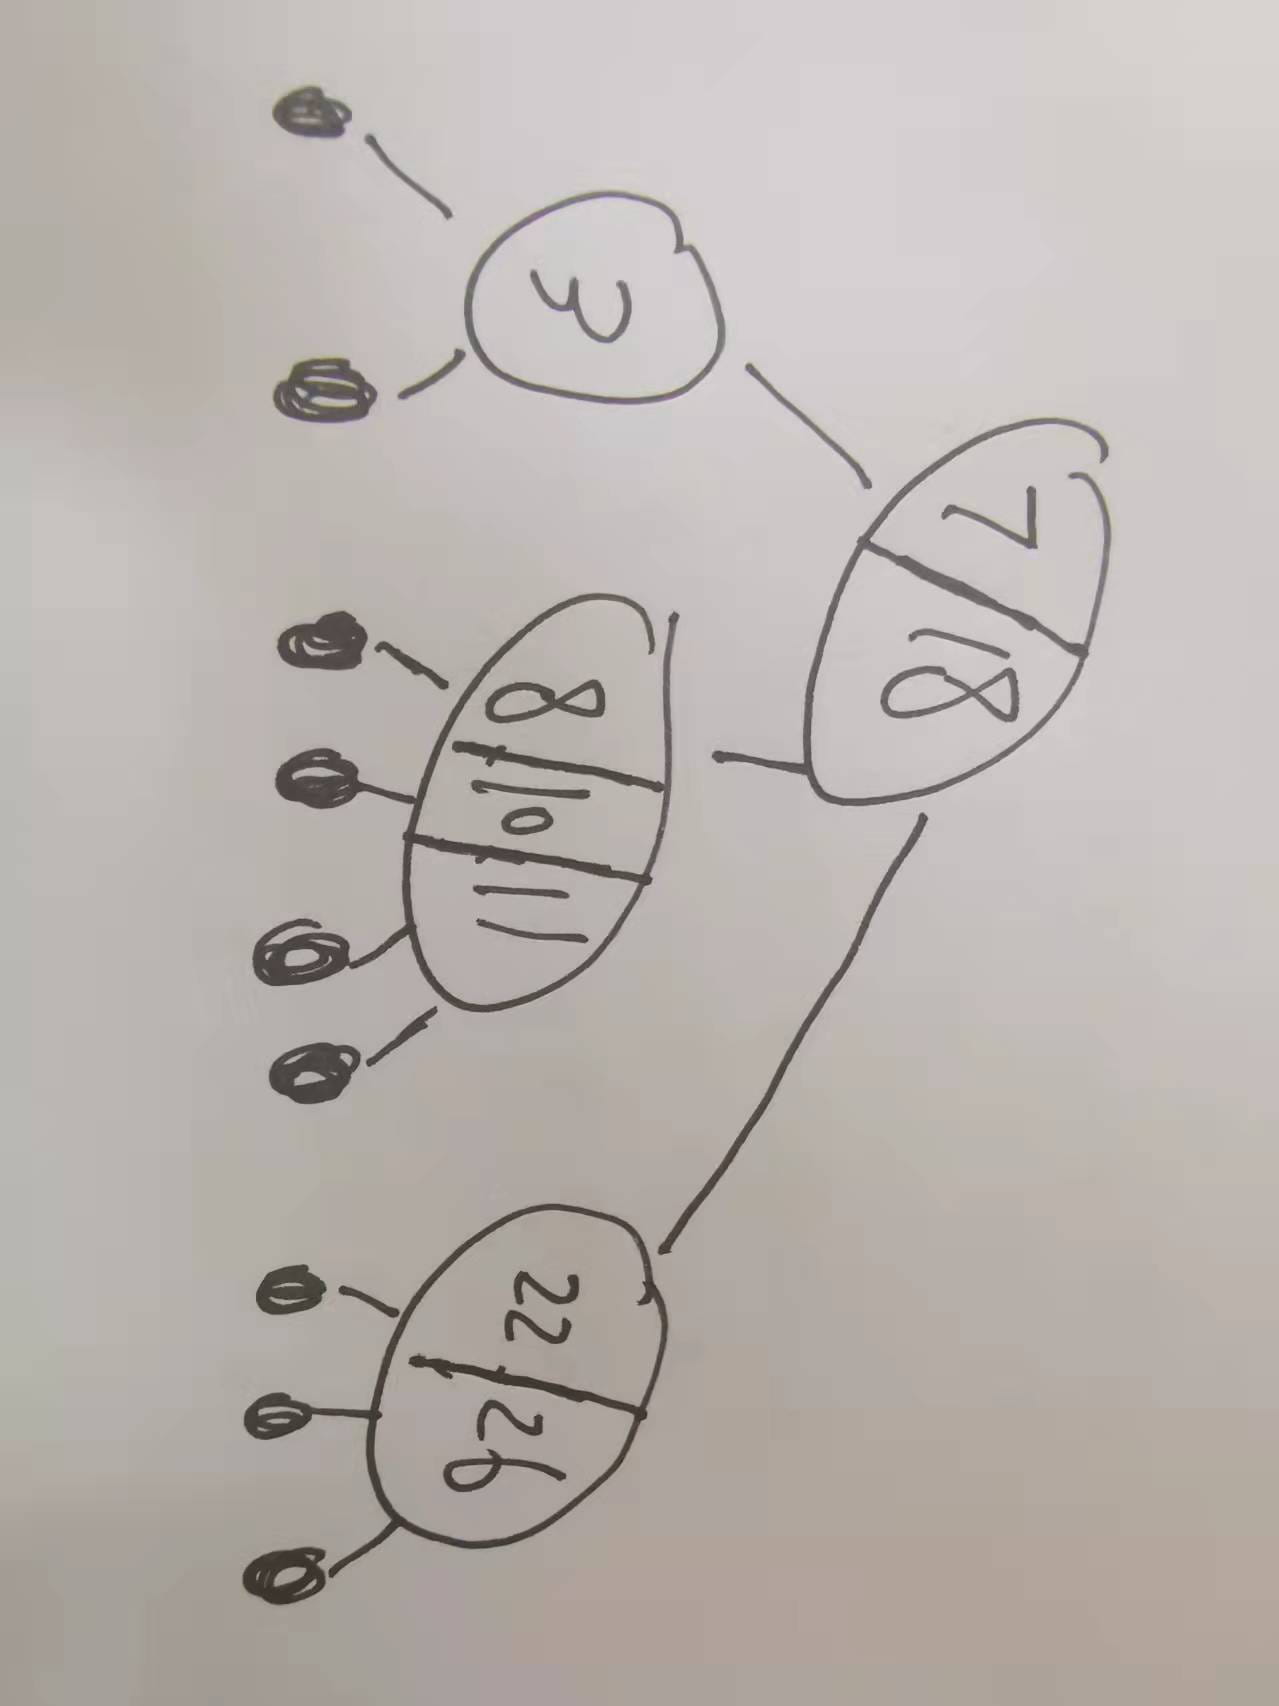 7 18
3 8 10 11 22 26